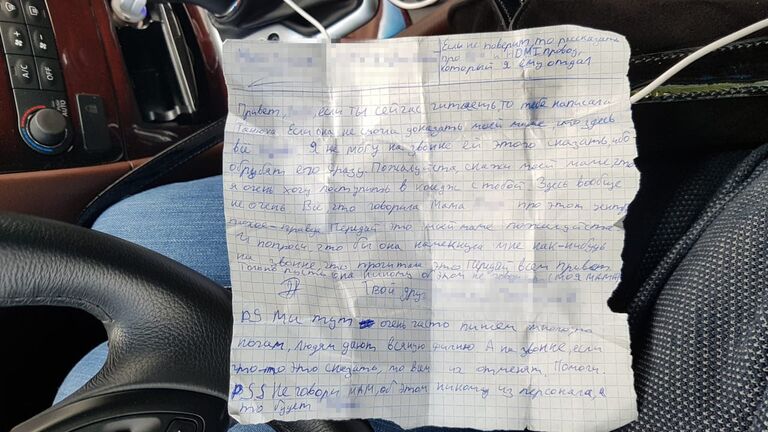 A/C
AUTO
Если не поверит, то расскажите
про и HDMI провод,
который я ему отдал
Привет, если ты сейчас читаешь, то тебе написала
Если она не смогла доказать моей маме, что здесь
всё Я не могу на звонке ей этого сказать, ибо
обрубят его сразу. Пожалуйста, скажи моей маме, что
я очень хочу поступить в колледж с тобой. Здесь вообще
не очень. Всё что говорила Мама про этом центр
плохое - правда. Передай это моей маме пожалуйста
И попроси, что бы она намекнула мне как-нибудь
на звонке, что прочитала это. Передай всем привет
Только пусть она никому об этом не (моя мама)
Твой друг
PS Мы тут очень часто пишем много, по
ночам, людям дают всякую фигню. А на звонке, если
что-то это сказать, то вам их отменят. Помоги.
PSS Не говори мам, об этом никому из персонала, а
то будет